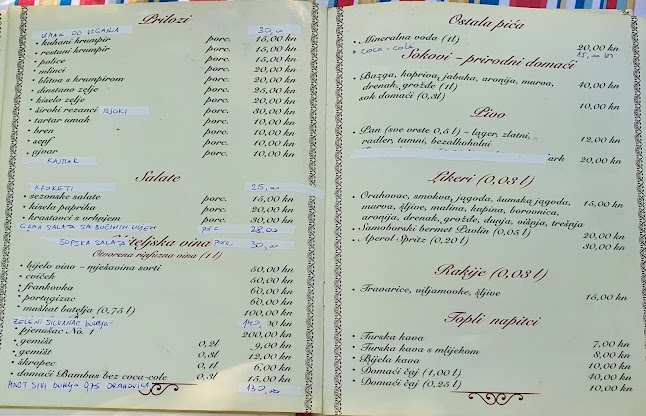 Prilozi
UMAK OD VRGANJA 30,00
• kuhani krumpir porc. 15,00 kn
• restani krumpir porc. 15,00 kn
• police porc. 15,00 kn
• mlinci porc. 20,00 kn
• blitva s krumpirom porc. 20,00 kn
• dinstano zelje porc. 25,00 kn
• kiselo zelje porc. 20,00 kn
• široki rezanci NJOKI porc. 30,00 kn
• tartar umak porc. 10,00 kn
• hren porc. 10,00 kn
• senf porc. 10,00 kn
• ajvar porc. 10,00 kn
KAJMAK
Salate
KROKETI 25,00
• sezonske salate porc. 15,00 kn
• kisela paprika porc. 20,00 kn
• krastavci s vrhnjem porc. 30,00 kn
GRAH SALATA SA BUČINIM ULJEM 28,00
ŠOPSKA SALATA porc. 30,00
teljska vina
Otvorena rinfuzna vina (1 l)
• bijelo vino - mješavina sorti 50,00 kn
• cviček 50,00 kn
• frankovka 60,00 kn
• portugizac 60,00 kn
• muškat butelja (0,75 l) 100,00 kn
ZELENI SILVANAC butelja
• pjenušac No. 1 200,00 kn
• gemišt 0,2l 9,00 kn
• gemišt 0,3l 12,00 kn
• škropec 0,1l 6,00 kn
• domaći Bambus bez coca-cole 0,3l 15,00 kn
PINOT SIVI butelja 0,75 ORAHOVICA 130,00
Ostala pića
• Mineralna voda (1l) 20,00 kn
• coca - cola 15,00 kn
Sokovi - prirodni domaći
• Bazga, kopriva, jabuka, aronija, murva,
drenak, grožđe (1l) 40,00 kn
sok domaći (0,3l) 10,00 kn
Pivo
• Pan (sve vrste 0,5 l) - lager, zlatni,
radler, tamni, bezalkoholni 12,00 kn
ark 20,00 kn
Likeri (0,03 l)
• Orahovac, smokva, jagoda, šumska jagoda, 15,00 kn
murva, šljive, malina, kupina, borovnica,
aronija, drenak, grožđe, dunja, višnja, trešnja
• Samoborski bermet Pavlin (0,05 l) 20,00 kn
• Aperol Spritz (0,20 l) 30,00 kn
Rakije (0,03 l)
• Travarice, viljamovke, šljive 15,00 kn
Topli napitci
• Turska kava 7,00 kn
• Turska kava s mlijekom 8,00 kn
• Bijela kava 10,00 kn
• Domaći čaj (1,00 l) 40,00 kn
• Domaći čaj (0,25 l) 10,00 kn